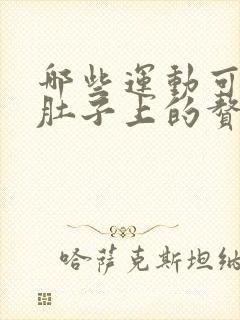 哪些運動可
肚子上的贅
哈萨克斯坦纳